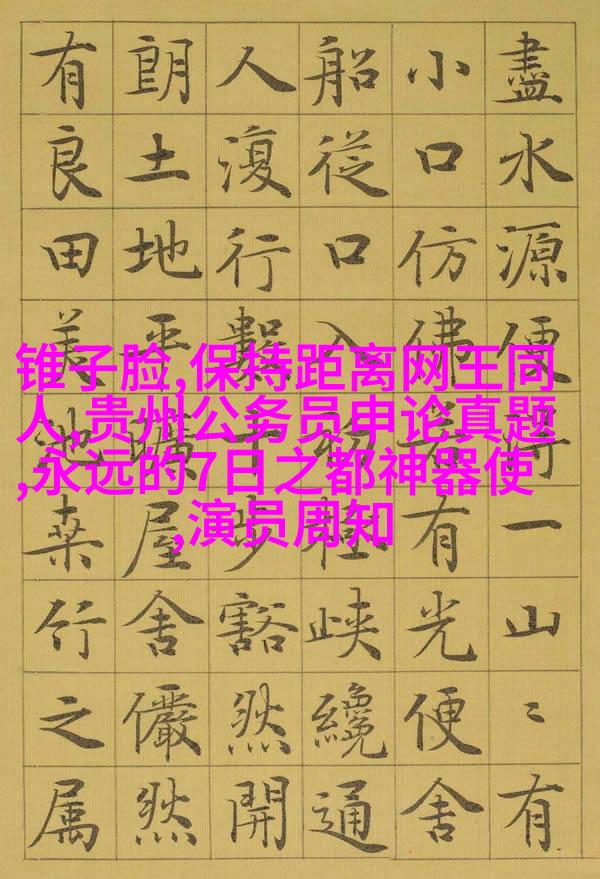 锥子脸,保持距离网王同
人,贵州公务员申论真题
,永远的7日之都神器使
,演员周知
盡水源便得一山〻有
小口仿佛若有光便舍
船從口入初極峽纔通
人復行數十步豁然開
朗土地平曠屋舍儼然
有良田美池桑竹之属